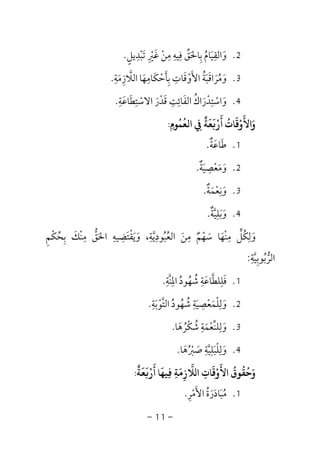 2. وَالقِيَامُ بِالحَقِّ فِيهِ مِنْ غَيْرِ تَبْدِيلٍ.
3. وَمُرَاقَبَةُ الأَوْقَاتِ بِأَحْكَامِهَا اللَّازِمَةِ.
4. وَاسْتِدْرَاكُ الفَائِتِ قَدْرَ الاسْتِطَاعَةِ.
وَالأَوْقَاتُ أَرْبَعَةٌ فِي العُمُومِ:
1. طَاعَةٌ.
2. وَمَعْصِيَةٌ.
3. وَنِعْمَةٌ.
4. وَبَلِيَّةٌ.
وَلِكُلٍّ مِنْهَا سَهْمٌ مِنَ العُبُودِيَّةِ، وَيَقْتَضِيهِ الحَقُّ مِنْكَ بِحُكْمِ
الرُّبُوبِيَّةِ:
1. فَلِلطَّاعَةِ شُهُودُ المِنَّةِ.
2. وَلِلْمَعْصِيَةِ شُهُودُ التَّوْبَةِ.
3. وَلِلنِّعْمَةِ شُكْرُهَا.
4. وَلِلْبَلِيَّةِ صَبْرُهَا.
وَحُقُوقُ الأَوْقَاتِ اللَّازِمَةِ فِيهَا أَرْبَعَةٌ:
1. مُبَادَرَةُ الأَمْرِ.
- 11 -